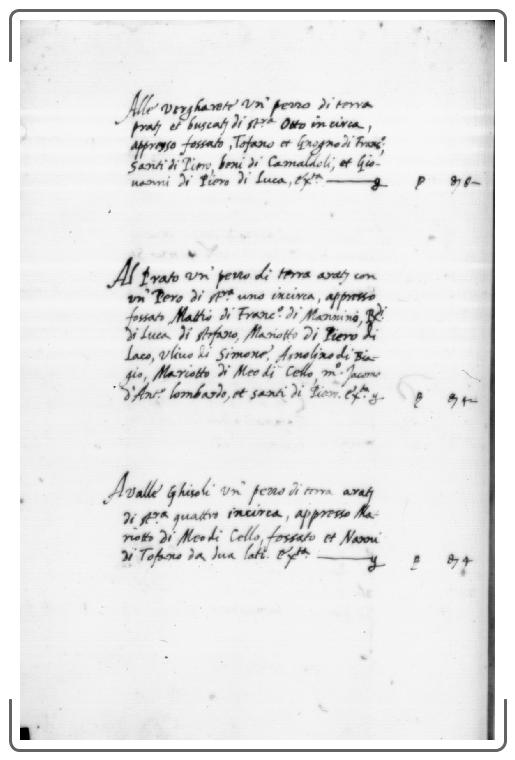 Alle vergharete un pezzo di terra
prati et buscati di st.ra Otto incirca,
appresso fossato, Tofano et Grogno di Franc.o,
Santi di Piero, beni di Camaldoli, et Gio-
vanni di Piero di Luca, etc.
Al Prato un pezzo di terra arati con
un Pero di st.ra uno incirca, appresso
fossato Mattio di Franc.o di Mannino,
di Luca di stefano, Mariotto di Piero di
Laco, Ulivo di Simone, Agnolino di Bia-
gio, Mariotto di Meo di Cello m.o Jacono
d'Ant.o lombardo, et santi di Piero.
A valle Ghisoli un pezzo di terra arati
di st.ra quattro incirca, appresso Ma-
riotto di Meo di Cello, fossato et Nanni
di Tofano da dua lati.